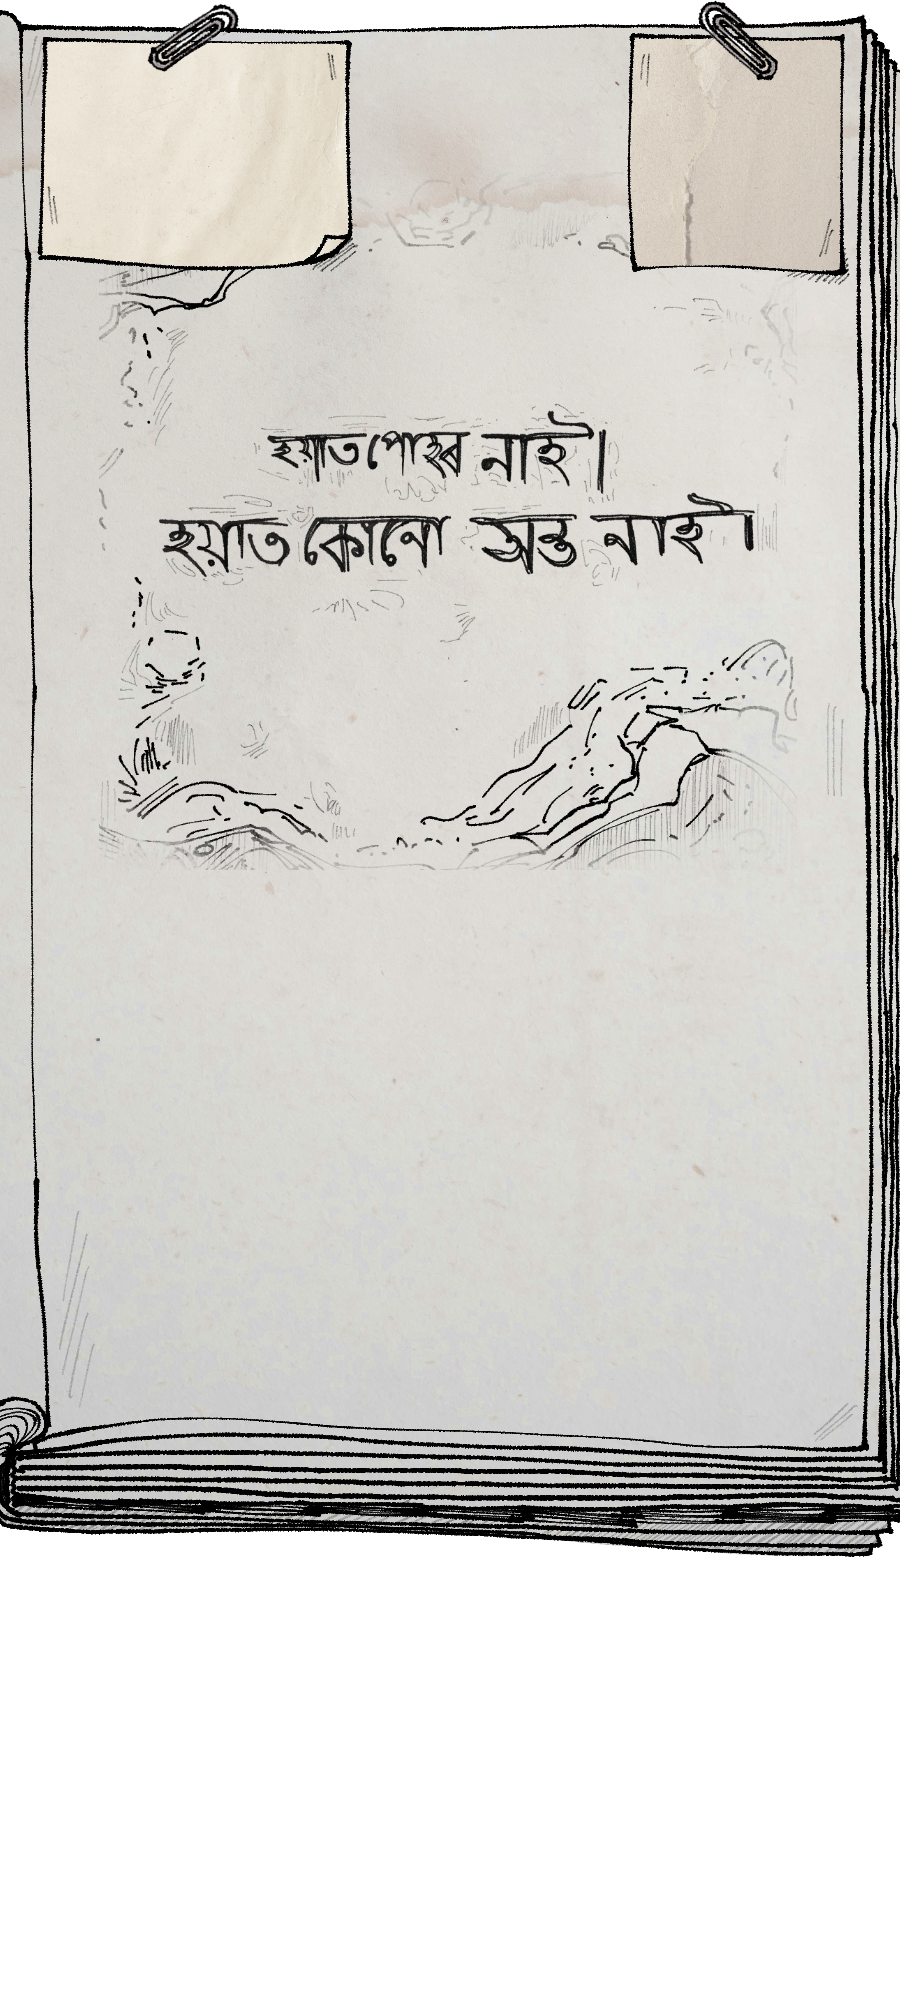 হয়াত পোহৰ নাই।
হয়াত কোনো অন্ত নাই।